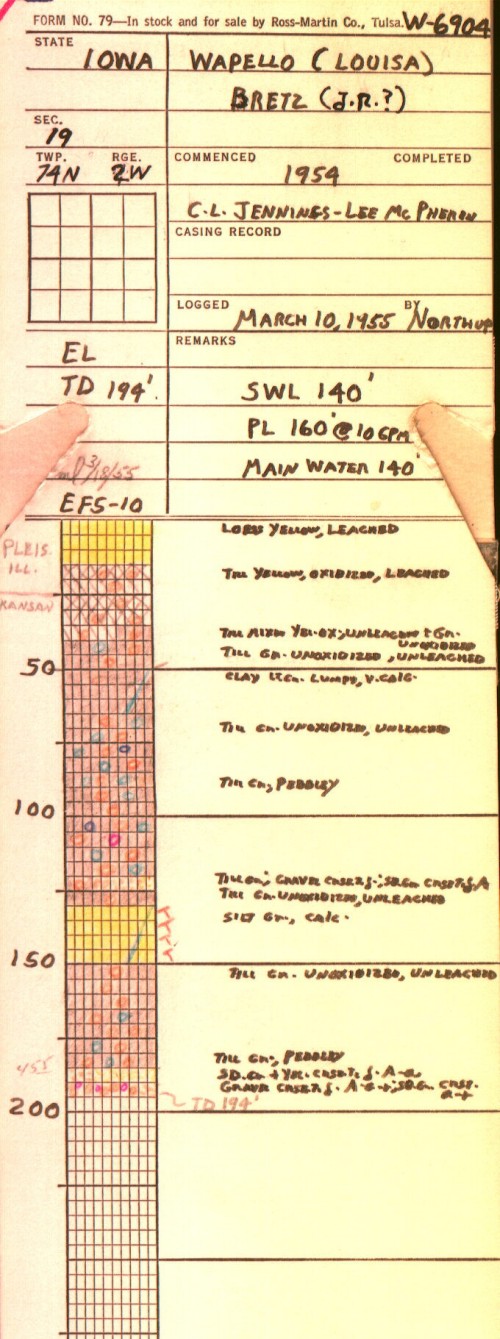 FORM NO. 79—In stock and for sale by Ross-Martin Co., Tulsa. W-6904
STATE
IOWA
WAPELLO (LOUISA)
BRETZ (J.R.?)
SEC.
19
TWP. RGE.
74N 2W
COMMENCED COMPLETED
1954
C.L. JENNINGS-LEE McPHERON
CASING RECORD
LOGGED BY
MARCH 10, 1955 NORTHUP
EL
REMARKS
TD 194'.
SWL 140'
PL 160' @ 10 GPM
3/18/55
MAIN WATER 140'
EFS-10
LOESS YELLOW, LEACHED
PLEIS.
ILL.
TILL YELLOW, OXIDIZED, LEACHED
KANSAN
TILL MIXED YEL-OX; UNLEACHED & GR.
UNOXIDIZED
TILL GR. UNOXIDIZED, UNLEACHED
50
CLAY LT.GR. LUMPY, V.CALC.
TILL GR. UNOXIDIZED, UNLEACHED
TILL GR., PEBBLEY
100
TILL GR.; GRAVEL
TILL GR. UNOXIDIZED, UNLEACHED
SILT GR., CALC.
150
TILL GR. UNOXIDIZED, UNLEACHED
TILL GR., PEBBLEY
455
SD. GR & YEL.
GRAVEL
TD 194'
200